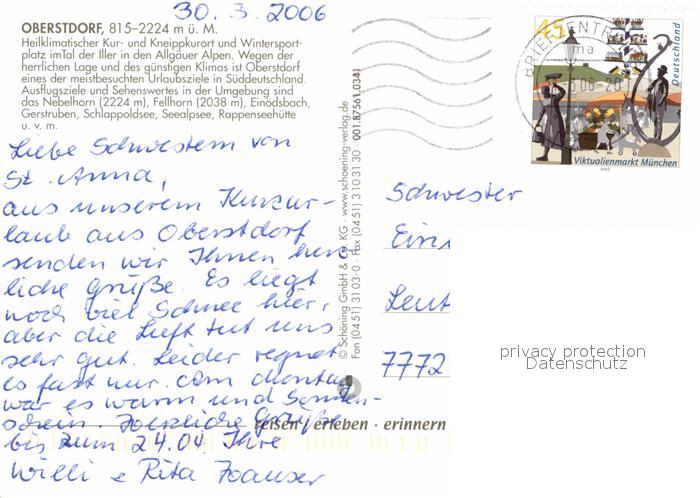 30. 3. 2006
OBERSTDORF, 815–2224 m ü. M.
Heilklimatischer Kur- und Kneippkurort und Wintersport-
platz imTal der Iller in den Allgäuer Alpen. Wegen der
herrlichen Lage und des günstigen Klimas ist Oberstdorf
eines der meistbesuchten Urlaubsziele in Süddeutschland.
Ausflugsziele und Sehenswertes in der Umgebung sind
das Nebelhorn (2224 m), Fellhorn (2038 m), Einödsbach,
Gerstruben, Schlappoldsee, Seealpsee, Rappenseehütte
u. v. m.
Liebe Schwestern von
St. Anna,
aus unserem Kurzur-
laub aus Oberstdorf
senden wir Ihnen herz
liche Grüße. Es liegt
noch viel Schnee hier,
aber die Luft tut uns
sehr gut. Leider regnet
es fast nur. Am Montag
war es warm und Sonnen-
schein. Herzliche Grüße
bis zum 24.04. Ihre
Willi + Rita
© Schöning GmbH & Co. KG · www.schoening-verlag.de
Fon (0451) 3103-0 · Fax (0451) 3103130 · 001.87561.0341
reisen · erleben · erinnern
45
Deutschland
Viktualienmarkt München
2003
BRIEFZENTRUM
Schwester
Leut
7772
privacy protection
Datenschutz